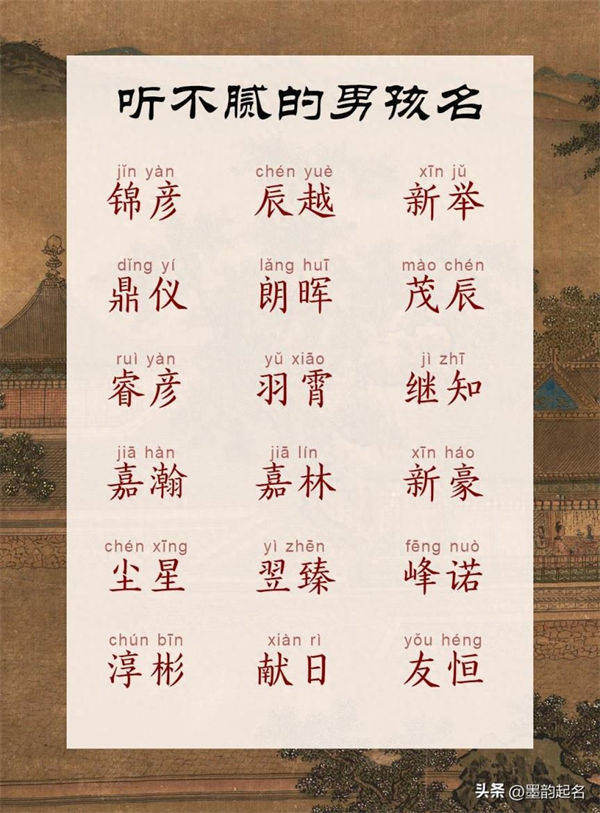 听不腻的男孩名
jǐn yàn chén yuè xīn jǔ
锦彦 辰越 新举
dǐng yí lǎng huī mào chén
鼎仪 朗晖 茂辰
ruì yàn yǔ xiāo jì zhī
睿彦 羽霄 继知
jiā hàn jiā lín xīn háo
嘉瀚 嘉林 新豪
chén xīng yì zhēn fēng nuò
尘星 翌臻 峰诺
chún bīn xiàn rì yǒu héng
淳彬 献日 友恒
头条 @墨韵起名